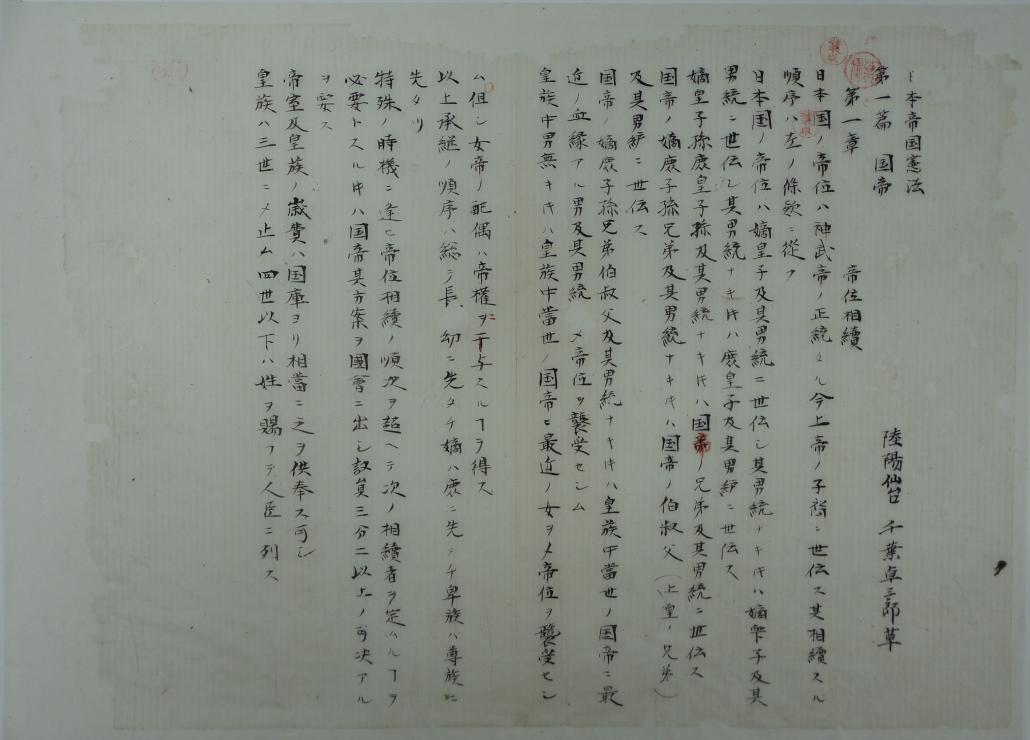 日本帝国憲法
陸陽仙台 千葉卓三郎草
第一篇 国帝
第一章 帝位相續
日本国ノ帝位ハ神武帝ノ正統タル今上帝ノ子裔ニ世伝ス其相續スル
順序ハ左ノ條款ニ從フ
日本国ノ帝位ハ嫡皇子及其男統ニ世伝シ其男統ナキ𪜈ハ嫡衆子及其
男統ニ世伝シ其男統ナキ𪜈ハ庶皇子及其男統ニ世伝ス
嫡皇子孫庶皇子孫及其男統ナキ𪜈ハ国帝ノ兄弟及其男統ニ世伝ス
国帝ノ嫡庶子孫兄弟及其男統ナキ𪜈ハ国帝ノ伯叔父(上皇ノ兄弟)
及其男統ニ世伝ス
国帝ノ嫡庶子孫兄弟伯叔父及其男統ナキ𪜈ハ皇族中當世ノ国帝ニ最
近ノ血縁アル男及其男統ヲ〆帝位ヲ襲受セシム
皇族中男無キ𪜈ハ皇族中當世ノ国帝ニ最近ノ女ヲ〆帝位ヲ襲受セシ
ム但シ女帝ノ配偶ハ帝權ニ干与スルヿヲ得ス
以上承継ノ順序ハ総テ長幼ニ先タチ嫡ハ庶ニ先タチ卑族ハ尊族ニ
先タツ
特殊ノ時機ニ逢ヒ帝位相續ノ順次ヲ超ヘテ次ノ相續者ヲ定ムルヿヲ
必要トスル𪜈ハ国帝其方案ヲ國會ニ出シ議員三分二以上ノ可決アル
ヲ要ス
帝室及皇族ノ歳費ハ国庫ヨリ相當ニ之ヲ供奉ス可シ
皇族ハ三世ニ〆止ム四世以下ハ姓ヲ賜フテ人臣ニ列ス